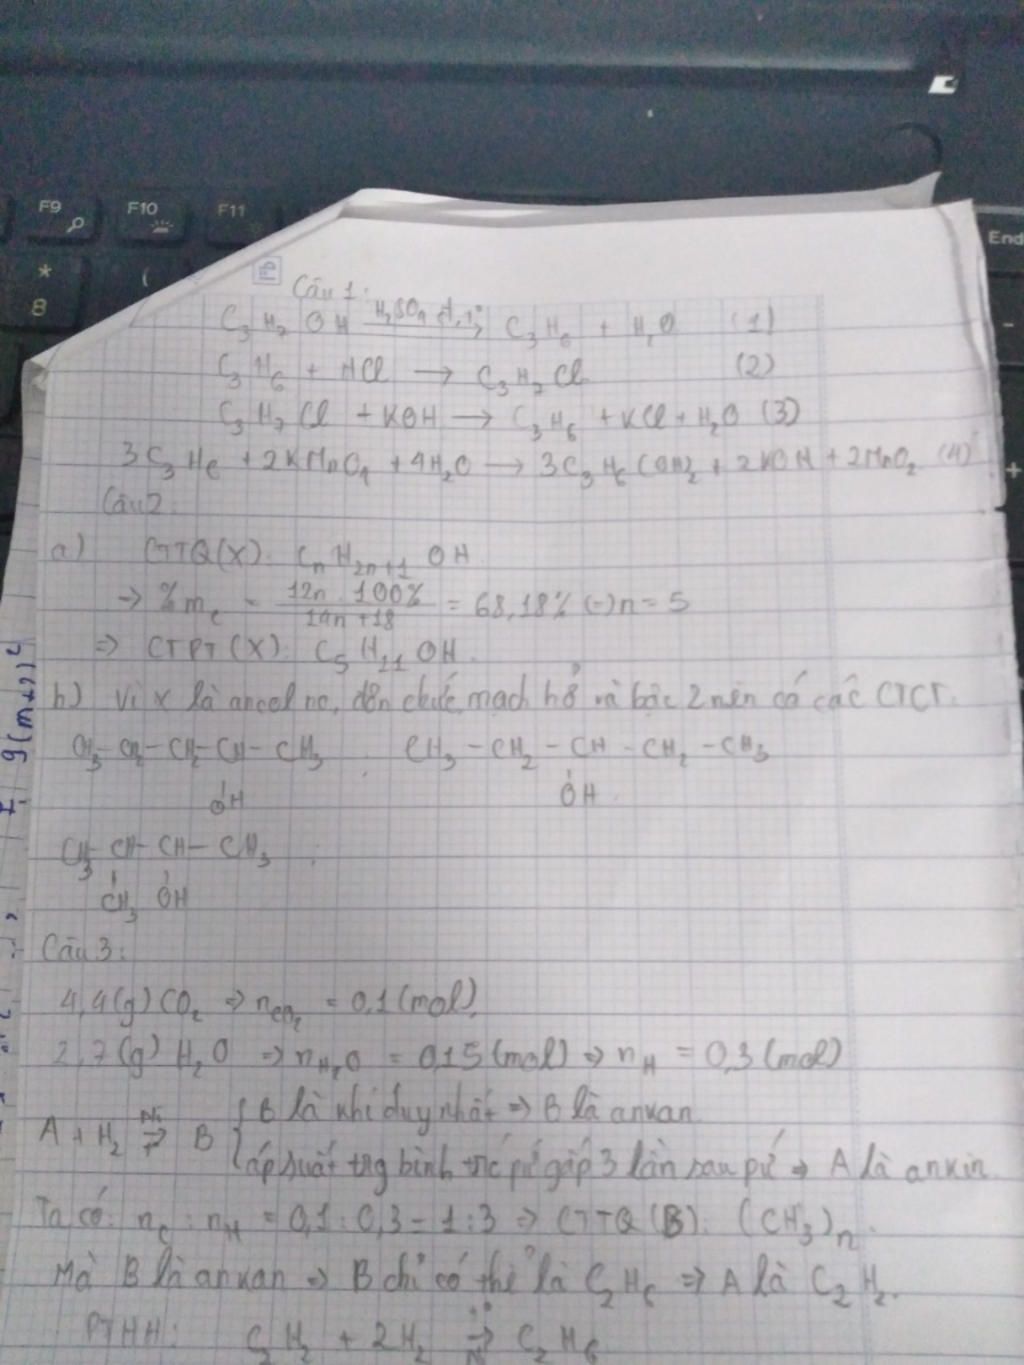 F9 F10 F11 End
* ( 8
Câu 1:
C₃H₇OH H₂SO₄ đ, t° → C₃H₆ + H₂O (1)
C₃H₆ + HCl → C₃H₇Cl (2)
C₃H₇Cl + KOH → C₃H₆ + KCl + H₂O (3)
3C₃H₆ + 2KMnO₄ + 4H₂O → 3C₃H₆(OH)₂ + 2KOH + 2MnO₂ (4)
Câu 2:
a) CTTQ(X): CₙH₂ₙ₊₁OH
→ %m_C = 12n.100% / 14n+18 = 68,18% (→) n = 5
⇒ CTPT(X): C₅H₁₁OH.
b) Vì X là ancol no, đơn chức, mạch hở và bậc 2 nên có các CTCT:
CH₃–CH₂–CH₂–CH–CH₃ ; CH₃–CH₂–CH–CH₂–CH₃
OH OH
CH₃–CH–CH–CH₃ ;
CH₃ OH
Câu 3:
4,4(g) CO₂ ⇒ n_CO₂ = 0,1 (mol)
2,7(g) H₂O ⇒ n_H₂O = 0,15 (mol) ⇒ n_H = 0,3 (mol)
A + H₂ Ni → B { B là khí duy nhất ⇒ B là ankan
áp suất trg bình trc pứ gấp 3 lần sau pứ ⇒ A là ankin
Ta có: n_C : n_H = 0,1 : 0,3 = 1 : 3 ⇒ CTTQ (B): (CH₃)ₙ.
Mà B là ankan ⇒ B chỉ có thể là C₂H₆ ⇒ A là C₂H₂.
PTHH: C₂H₂ + 2H₂ t° → Ni C₂H₆